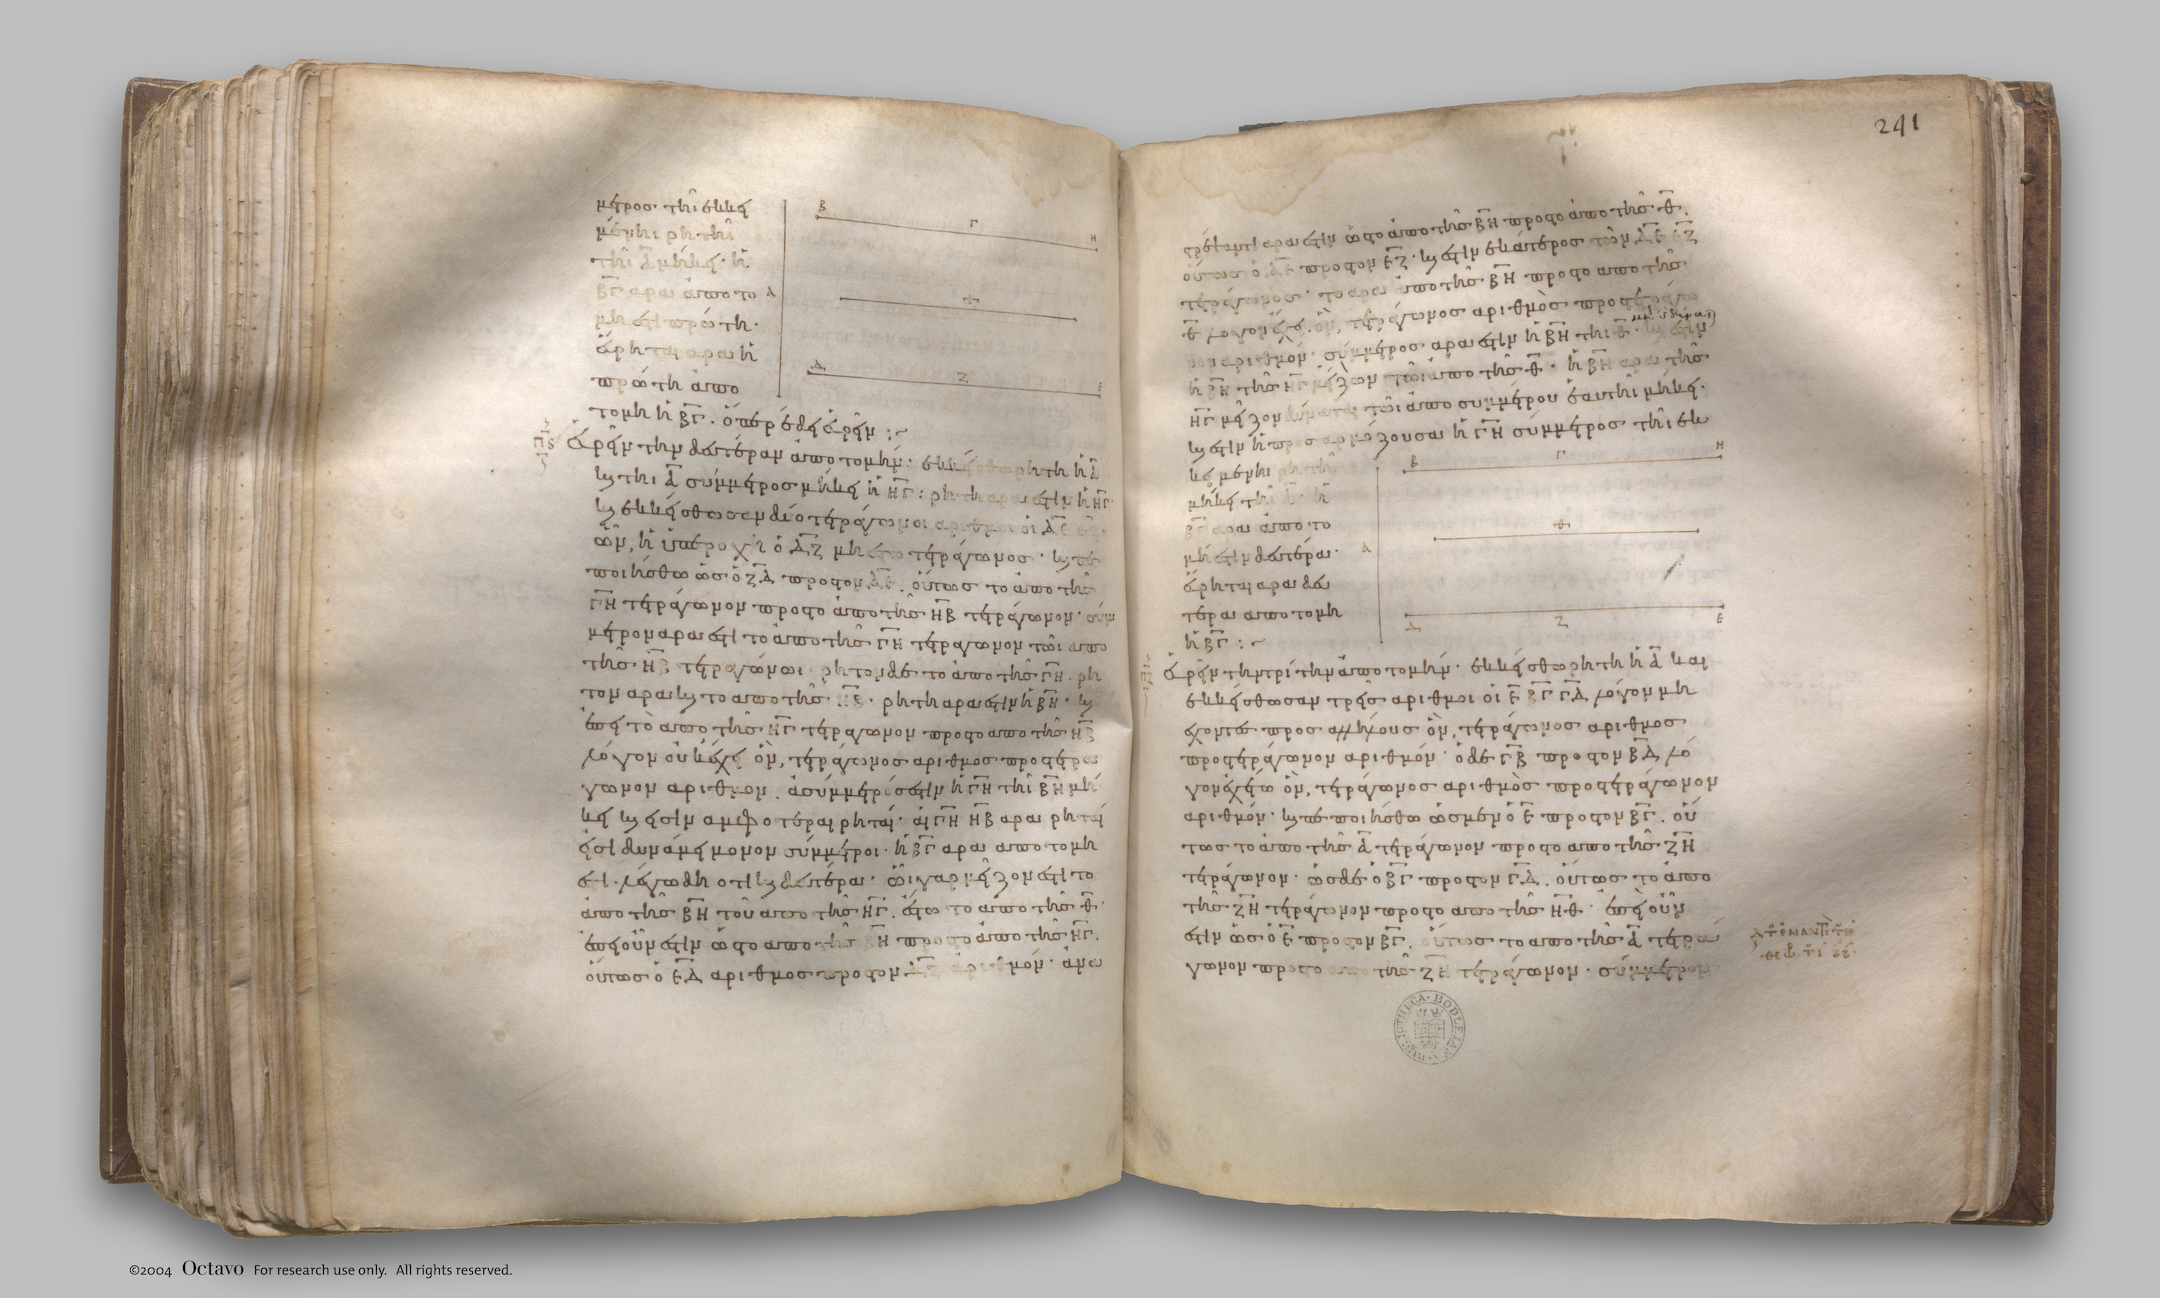 μετρος τῆι ἐκκει
μένηι ρητῆι
τῆι Α μήκει· ἡ
ΒΓ αρα ἀποτο
μή εστι πρώτη·
εὕρηται αρα ἡ
πρώτη ἀπο
τομὴ ἡ ΒΓ. ὅπερ ἔδει εὑρεῖν :~
Β Γ Η
Α
Θ
Δ Ζ Ε
πϛ Εὑρεῖν την δευτέραν ἀποτομήν· ἐκκείσθω ρητὴ ἡ Α
καὶ τῆι Α σύμμετρος μήκει ἡ ΗΓ: ρητὴ αρα ἐστὶν ἡ ΗΓ·
καὶ ἐκκείσθωσαν δύο τετράγωνοι αριθμοὶ οἱ ΔΕ ΕΖ·
ὧν, ἡ ὑπεροχὴ ὁ ΔΖ μὴ έστω τετράγωνος· καὶ πε
ποιήσθω ὡς ὁ ΖΔ προς τον ΔΕ. οὕτως το ἀπο τῆς
ΓΗ τετράγωνον προς το ἀπο τῆς ΗΒ τετράγωνον· σύμ
μετρον αρα εστὶ το ἀπο τῆς ΓΗ τετραγωνον τῶι απο
τῆς ΗΒ τετραγώνωι· ρητον δὲ το ἀπο τῆς ΓΗ· ρη
τον αρα καὶ το απο τῆς ΗΒ· ρητὴ αρα εστὶν ἡ ΒΗ· καὶ
ἐπεὶ τὸ απο τῆς ΗΓ τετραγωνον προς το απο τῆς ΗΒ
λόγον οὐκ έχει ὃν, τετράγωνος αριθμος προς τετρα
γωνον αριθμον. ἀσύμμετρός εστιν ἡ ΓΗ τῆι ΒΗ μή
κει καὶ εἰσὶν αμφότεραι ρηταί· αἱ ΓΗ ΗΒ αρα ρηταί
εἰσὶ δυνάμει μονον σύμμετροι· ἡ ΒΓ αρα απο τομή
εστι· λέγω δὴ οτι καὶ δευτέρα· ὧι γαρ μεῖζον εστι το
ἀπο τῆς ΒΗ τοῦ ἀπο τῆς ΗΓ. έστω το απο τῆς Θ·
ἐπεὶ οὖν εστὶν ὡς το απο τῆς ΒΗ προς το ἀπο τῆς ΗΓ.
οὕτως ὁ ΕΔ αριθμος προς τον ΔΖ αριθμόν· ἀνα
241
στρέψαντι αρα εστὶν ὡς το ἀπο τῆς ΒΗ προς το ἀπο τῆς Θ.
οὕτως ὁ ΔΕ προς τον ΕΖ· καὶ εστιν ἑκάτερος τῶν ΔΕ ΕΖ
τετράγωνος· το αρα ἀπο τῆς ΒΗ προς το απο τῆς
Θ λογον έχει. ὃν, τετράγωνος αριθμὸς προς τετράγω
νον αριθμόν· σύμμετρος αρα εστὶν ἡ ΒΗ τῆι Θ· καὶ εστιν
ἡ ΒΗ τῆς ΗΓ μεῖζων τῶι ἀπο τῆς Θ· ἡ ΒΗ αρα τῆς
ΗΓ μεῖζον δύναται τῶι ἀπο συμμέτρου ἑαυτῆι μήκει.
καὶ εστιν ἡ προσαρμόζουσα ἡ ΓΗ σύμμετρος τῆι εκ
κειμένηι ρητῆι
μήκει τῆι Α· ἡ
ΒΓ αρα ἀπο το
μή εστιν δευτέρα·
εὕρηται αρα δευ
τέρα απο τομὴ
ἡ ΒΓ :~
Β Γ Η
Θ
Α
Δ Ζ Ε
πζ Εὑρεῖν την τρίτην ἀπο τομήν· ἐκκείσθω ρητὴ ἡ Α και
εκκείσθωσαν τρεῖς αριθμοι οἱ Ε ΒΓ ΓΔ λόγον μὴ
έχοντες προς αλλήλους ὃν, τετράγωνος αριθμος
προς τετράγωνον αριθμόν· ὁ δὲ ΓΒ προς τον ΒΔ λό
γον ἐχέτω ὃν, τετράγωνος αριθμὸς προς τετράγωνον
αριθμόν· καὶ πεποιήσθω ὡς μὲν ὁ Ε προς τον ΒΓ. οὕ
τως το ἀπο τῆς Α τετράγωνον προς το απο τῆς ΖΗ
τετράγωνον· ὡς δὲ ὁ ΒΓ προς τον ΓΔ. οὕτως το ἀπο
τῆς ΖΗ τετράγωνον προς το απο τῆς ΗΘ· ἐπεὶ οὖν
εστὶν ὡς ὁ Ε προς τον ΒΓ. οὕτως το απο τῆς Α τετρα
γωνον προς το απο τῆς ΖΗ τετράγωνον· σύμμετρον
BIBLIOTHECA BODLEIANA
©2004 Octavo For research use only. All rights reserved.